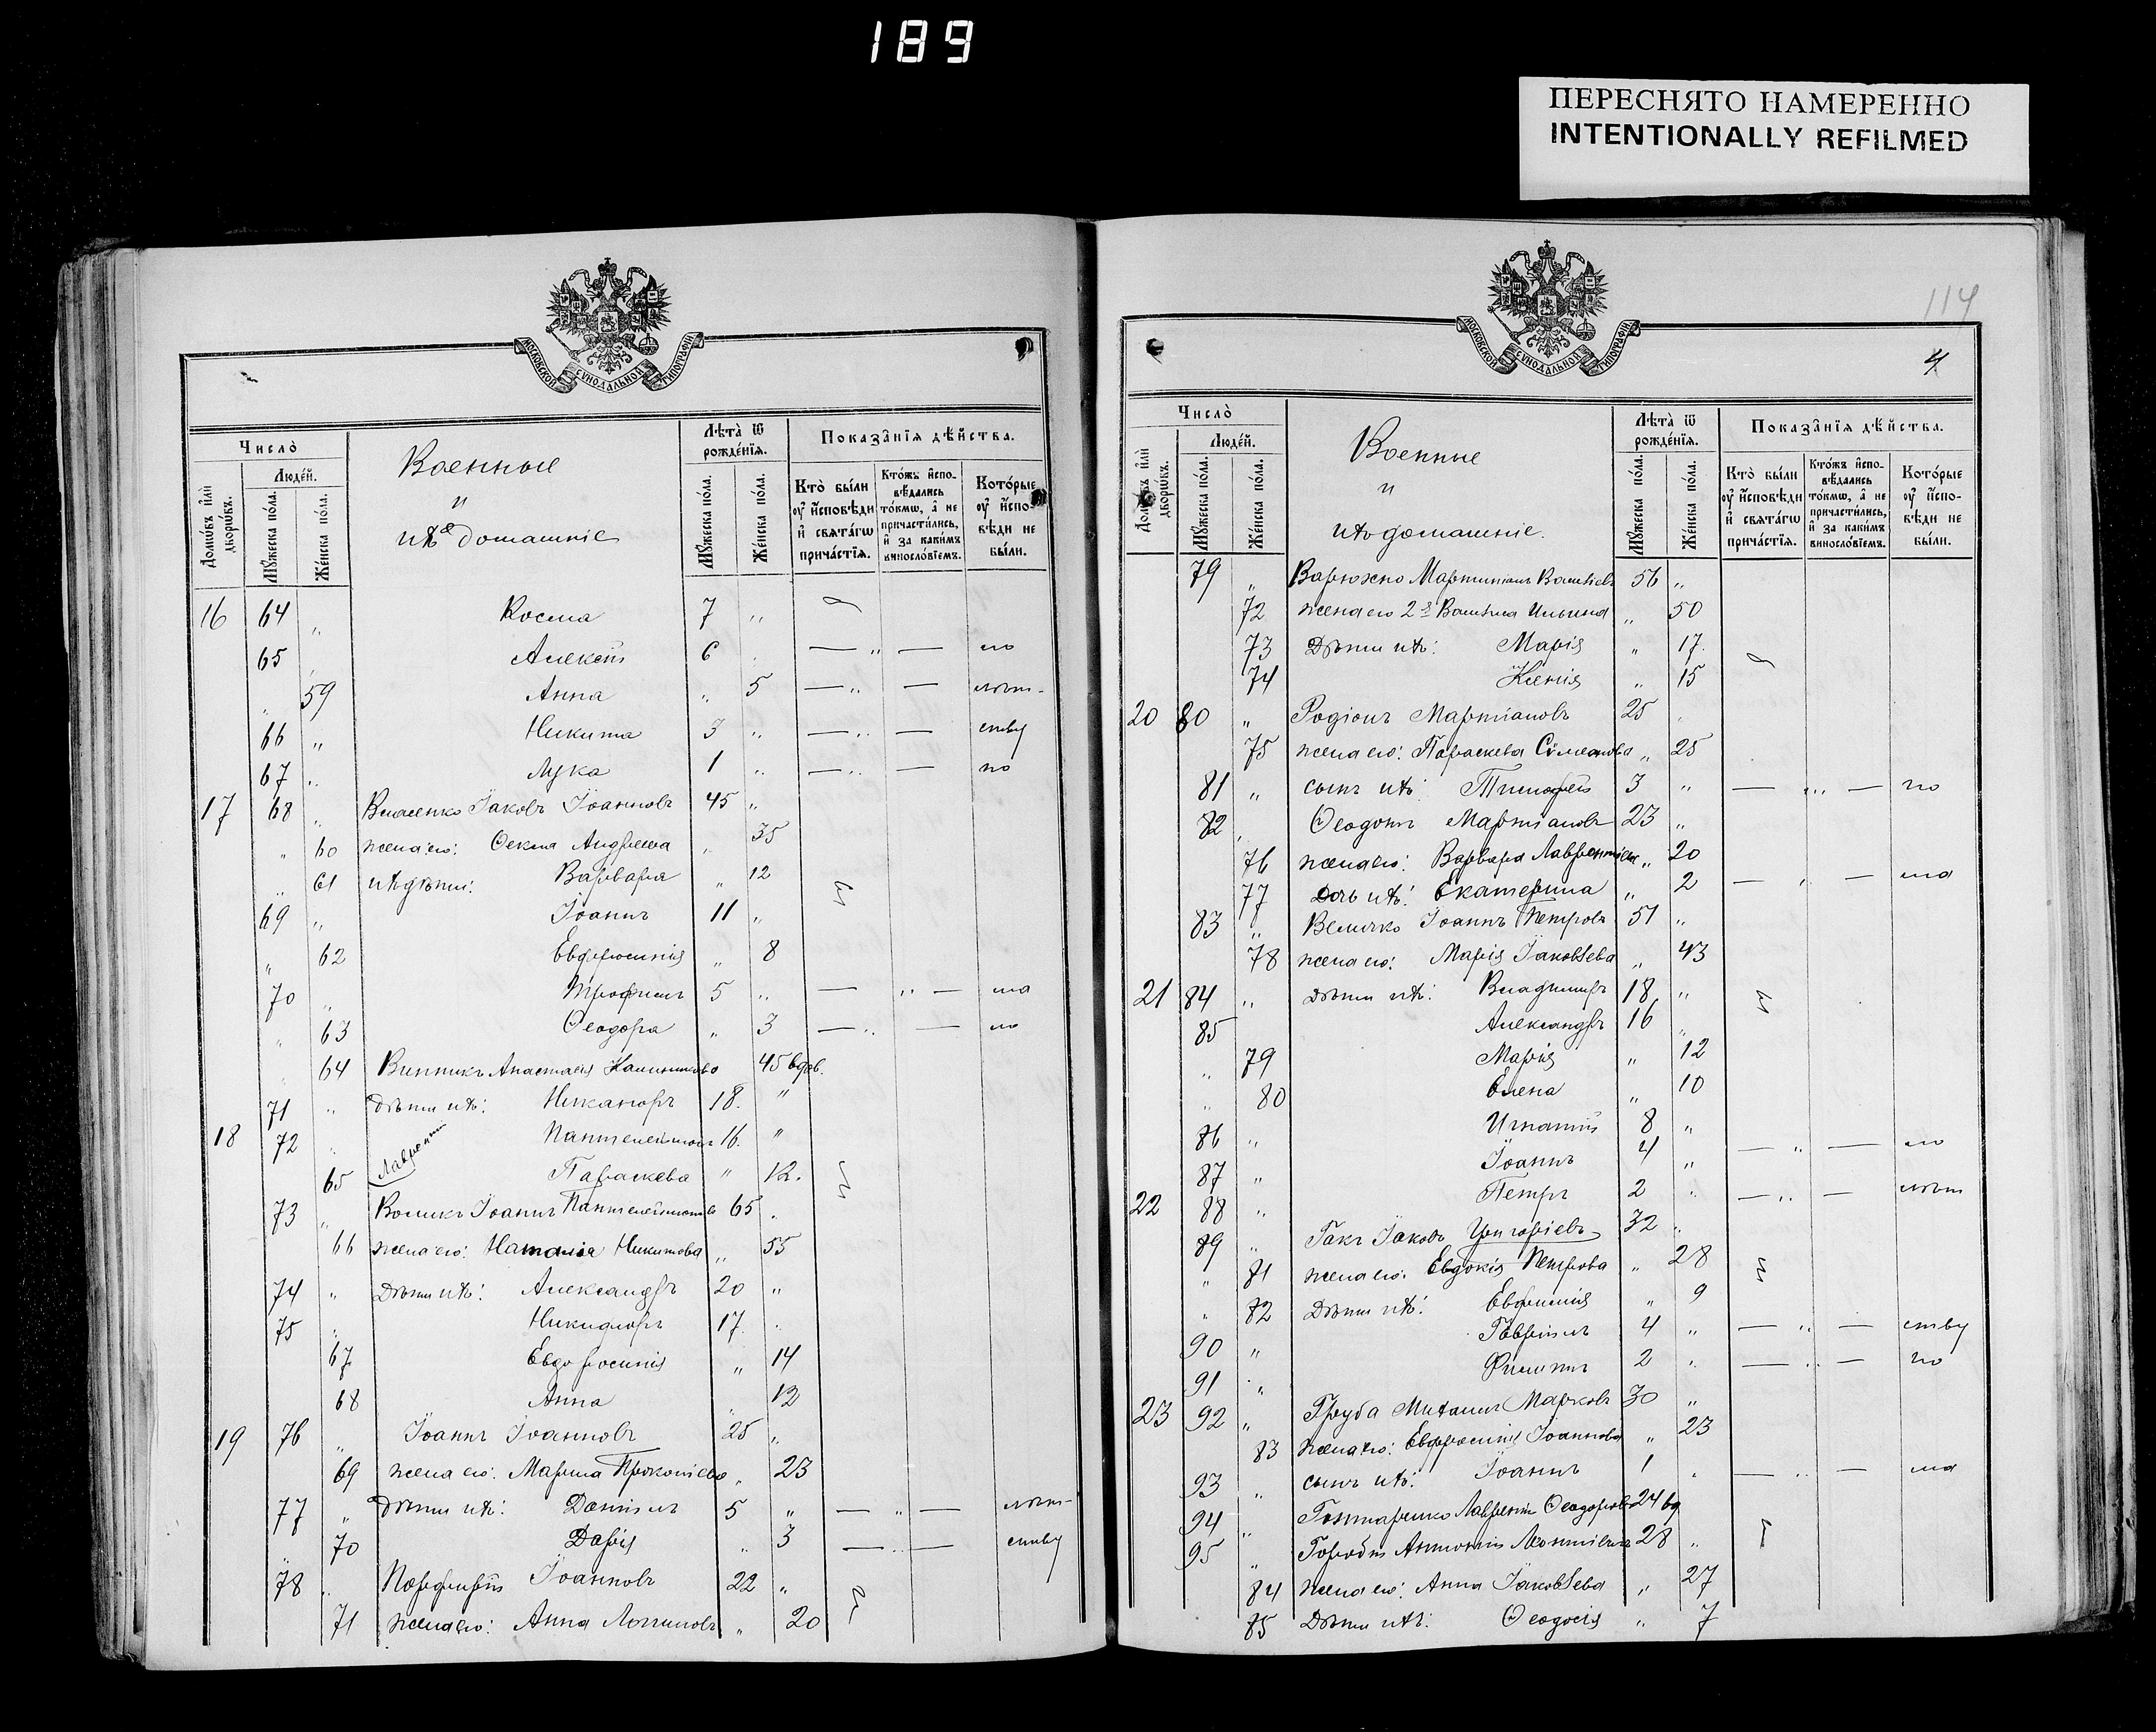 189
ПЕРЕСНЯТО НАМЕРЕННО
INTENTIONALLY REFILMED
МОСКОВСКОЙ СУНОДАЛЬНОЙ ТИПОГРАФІИ
Число̀
Люде́й.
Домо́въ и҆лѝ дворѡ́въ.
Мꙋ́жеска по́ла.
Же́нска по́ла.
Военные
и
ихъ домашніе
Лѣта̀ ѿ рожде́нїѧ.
Мꙋ́жеска по́ла.
Же́нска по́ла.
Показа̑нїѧ дѣ́йства.
Кто̀ бы́ли оу҆ и҆сповѣди и҆ свѧта́гѡ прича́стїѧ.
Кто́жъ и҆спо-вѣ́дались то́кмѡ, а҆ не причасти́лись, и҆ за каки́мъ винословїемъ.
Кото́рые оу҆ и҆спо-вѣ́ди не бы́ли.
16 64 " Косма 7 "
65 " Алексѣй 6 " — " — по
" 59 Анна " 5 — " — мѣт-
66 " Никита 3 " — " — ству
67 " Лука 1 " — " — по
17 68 " Власенко Іаковъ Іоанновъ 45 "
" 60 жена его: Ѳекла Андреева " 35
" 61 ихъ дѣти: Варвара " 12
69 " Іоаннъ 11 "
" 62 Евфросинія " 8
70 " Трофимъ 5 " — " — ма
" 63 Ѳеодора " 3 — " — ло
64 Винникъ Анастасія Калиникова 45 вдов.
71 " Дѣти ихъ: Никаноръ 18 "
18 72 " Пантелеймонъ 16 "
Лаврент
65 Параскева " 12.
73 " Воликъ Іоаннъ Пантелеймоновъ 65 "
66 жена его: Наталія Никитова " 55
74 " Дѣти ихъ: Александръ 20 "
75 " Никифоръ 17 "
67 Евдросинія " 14
68 Анна 12
19 76 " Іоаннъ Іоанновъ 25 "
69 жена его: Марина Прокопіева " 23
77 " Дѣти ихъ: Даніилъ 5 " — " — мѣт-
70 Дарія " 3 — " — ству
78 " Порфирій Іоанновъ 22 "
71 жена его: Анна Логинова " 20
114
4
МОСКОВСКОЙ СУНОДАЛЬНОЙ ТИПОГРАФІИ
Число̀
Люде́й.
Домо́въ и҆лѝ дворѡ́въ.
Мꙋ́жеска по́ла.
Же́нска по́ла.
Военные
и
ихъ домашніе.
Лѣта̀ ѿ рожде́нїѧ.
Мꙋ́жеска по́ла.
Же́нска по́ла.
Показа̑нїѧ дѣ́йства.
Кто̀ бы́ли оу҆ и҆сповѣди и҆ свѧта́гѡ прича́стїѧ.
Кто́жъ и҆спо-вѣ́дались то́кмѡ, а҆ не причасти́лись, и҆ за каки́мъ винословїемъ.
Кото́рые оу҆ и҆спо-вѣ́ди не бы́ли.
79 " Варюхно Мартиніанъ 56 "
72 жена его 2я Ильина " 50
73 Дѣти ихъ: Марія " 17.
74 Ксенія " 15
20 80 " Родіонъ Мартіановъ 25
75 жена его: Параскева Сѵмеонова " 25
81 " сынъ ихъ Тимофей 3 " — " — по
82 Ѳеодотъ Мартіановъ 23 "
76 жена его: Варвара Лаврентіева " 20
77 дочь ихъ: Екатерина " 2 — " — ма
83 " Величко Іоаннъ Петровъ 51 "
78 жена его: Марія Іаковлева " 43
21 84 " Дѣти ихъ: Владиміръ 18 "
85 Александръ 16 "
" 79 Марія " 12
" 80 Елена " 10
86 " Игнатій 8 "
87 " Іоаннъ 4 " — " — ло
22 88 " Петръ 2 " — " — мѣт
89 " Гакъ Іаковъ Григоріевъ 32 "
" 81 жена его: Евдокія Петрова " 28
" 82 Дѣти ихъ: Евфимія " 9
90 " Гавріилъ 4 " — " — ству
91 " Филиппъ 2 " — " — по
23 92 " Груба Михаилъ Марковъ 30 "
83 жена его: Евфросинія Іоаннова " 23
93 " сынъ ихъ: Іоаннъ 1 " — " — ма
94 " Лаврентій Ѳеодоровъ 24 вд
95 " Антоній Леонтіевъ 28 "
84 жена его: Анна Іаковлева " 27
85 Дѣти ихъ: Ѳеодосія " 7